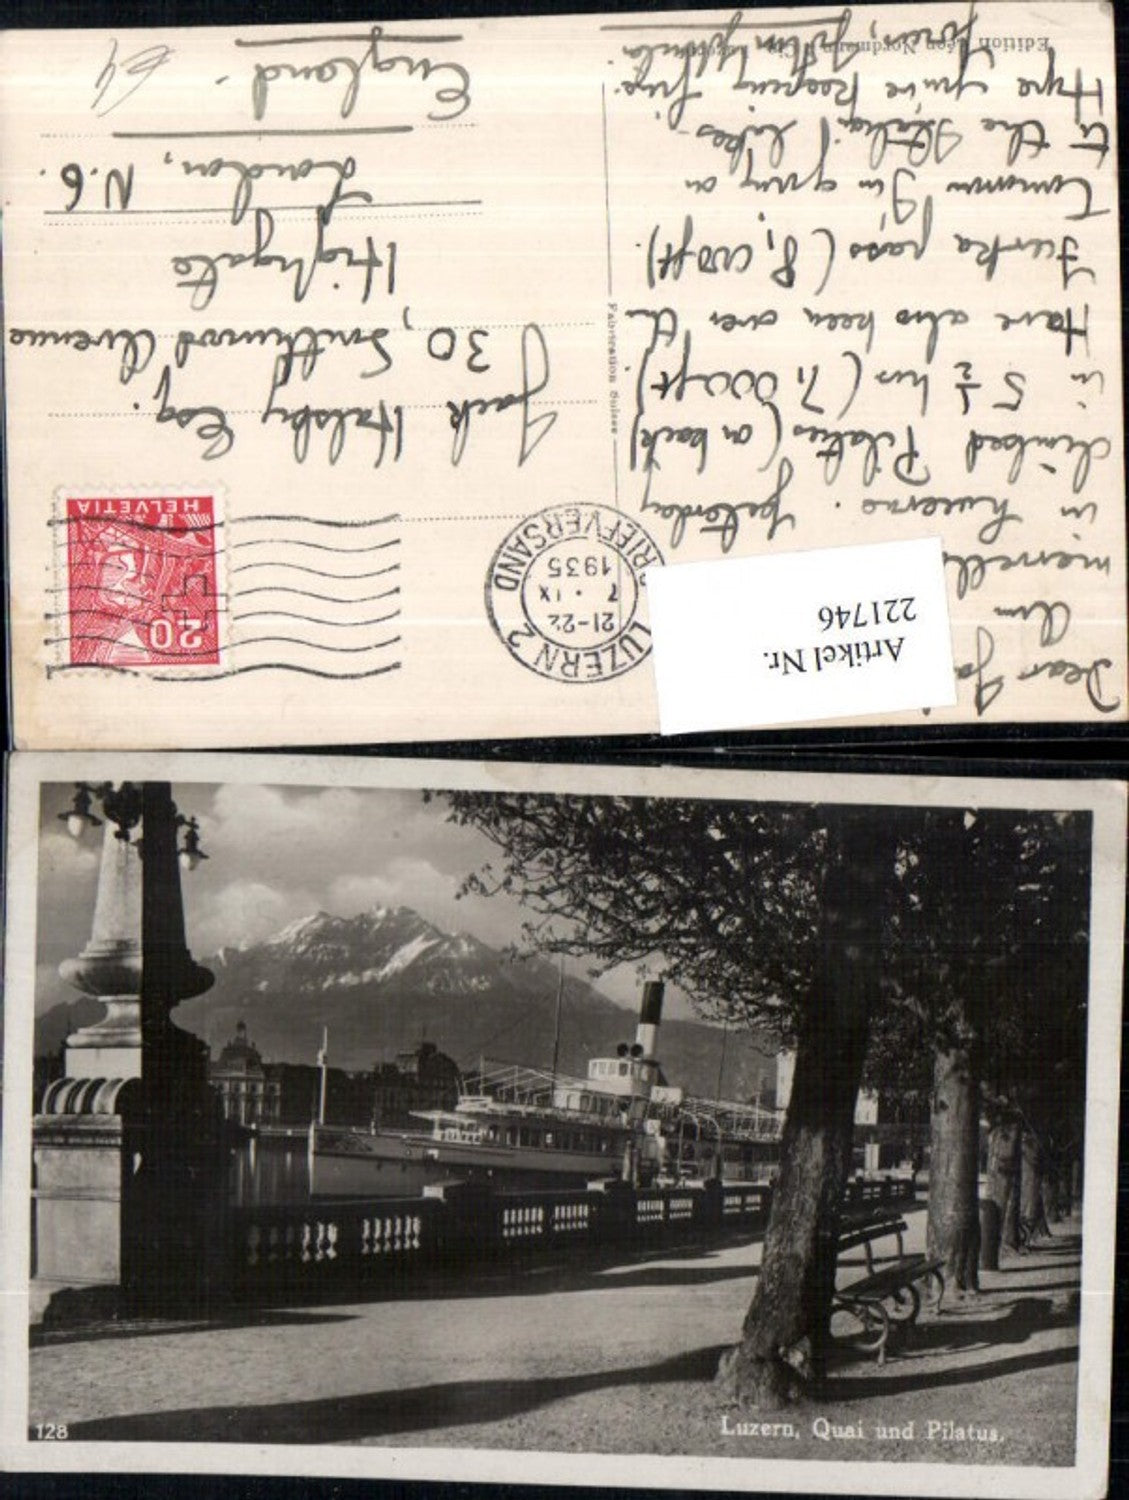 Dear
Am
in Lucerne. Yesterday
climbed Pilatus (on back)
in 5 ½ hrs (7,000 ft)
Have also been over the
Furka pass (8,000 ft).
Tomorrow I'm going on
to the Italian lakes.
Hope you're keeping fine.
Artikel Nr.
221746
LUZERN 2
21-22
7 · IX
1935
BRIEFVERSAND
20
HELVETIA
Jack Halsby Esq.
30, Southwood Avenue
Highgate
London, N.6.
England.
Fabrication Suisse
Edition Léon Nordmann
128
Luzern, Quai und Pilatus.